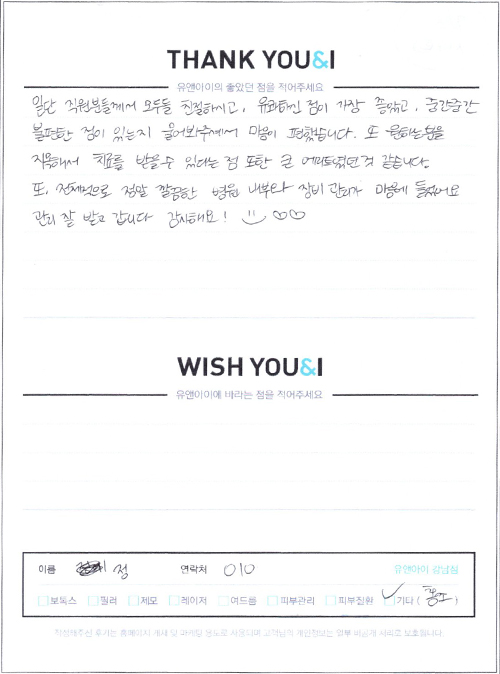 THANK YOU&I
유앤아이의 좋았던 점을 적어주세요
일단 직원분들께서 모두들 친절하시고, 유쾌하신 점이 가장 좋았고, 중간중간
불편한 점이 있는지 물어봐주셔서 마음이 편했습니다. 또 원하는 부분을
지목해서 치료를 받을 수 있다는 점 또한 큰 메리트였던것 같습니다.
또, 전체적으로 정말 깔끔한 병원 내부와 장비 관리가 마음에 들었어요
관리 잘 받고 갑니다 감사해요!
WISH YOU&I
유앤아이에 바라는 점을 적어주세요
이름 정 연락처 010 유앤아이 강남점
보톡스 필러 제모 레이저 여드름 피부관리 피부질환 기타 ( )
작성해주신 후기는 홈페이지 게재 및 마케팅 용도로 사용되며 고객님의 개인정보는 일부 비공개 처리로 보호됩니다.